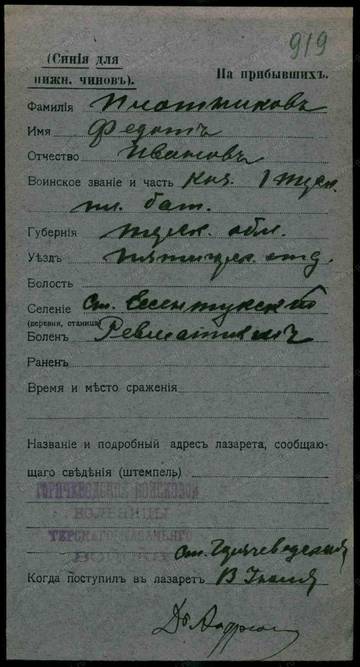 919
(Синія для
нижн. чиновъ).
На прибывшихъ.
Фамилія Плотниковъ
Имя Федотъ
Отчество Ивановъ
Воинское званіе и часть каз. 1 терск.
пл. бат.
Губернія терск. обл.
Уѣздъ пятигорск. отд.
Волость
Селеніе ст. Есентукской
(деревня, станица)
Боленъ Ревматизмъ
Раненъ
Время и мѣсто сраженія
Названіе и подробный адресъ лазарета, сообщаю-
щаго свѣдѣнія (штемпель)
ГОРЯЧЕВОДСКАЯ ВОЙСКОВОЙ
БОЛЬНИЦЫ
ТЕРСКАГО КАЗАЧЬЯГО
ВОЙСКА
ст. Горячеводская
Когда поступилъ въ лазаретъ